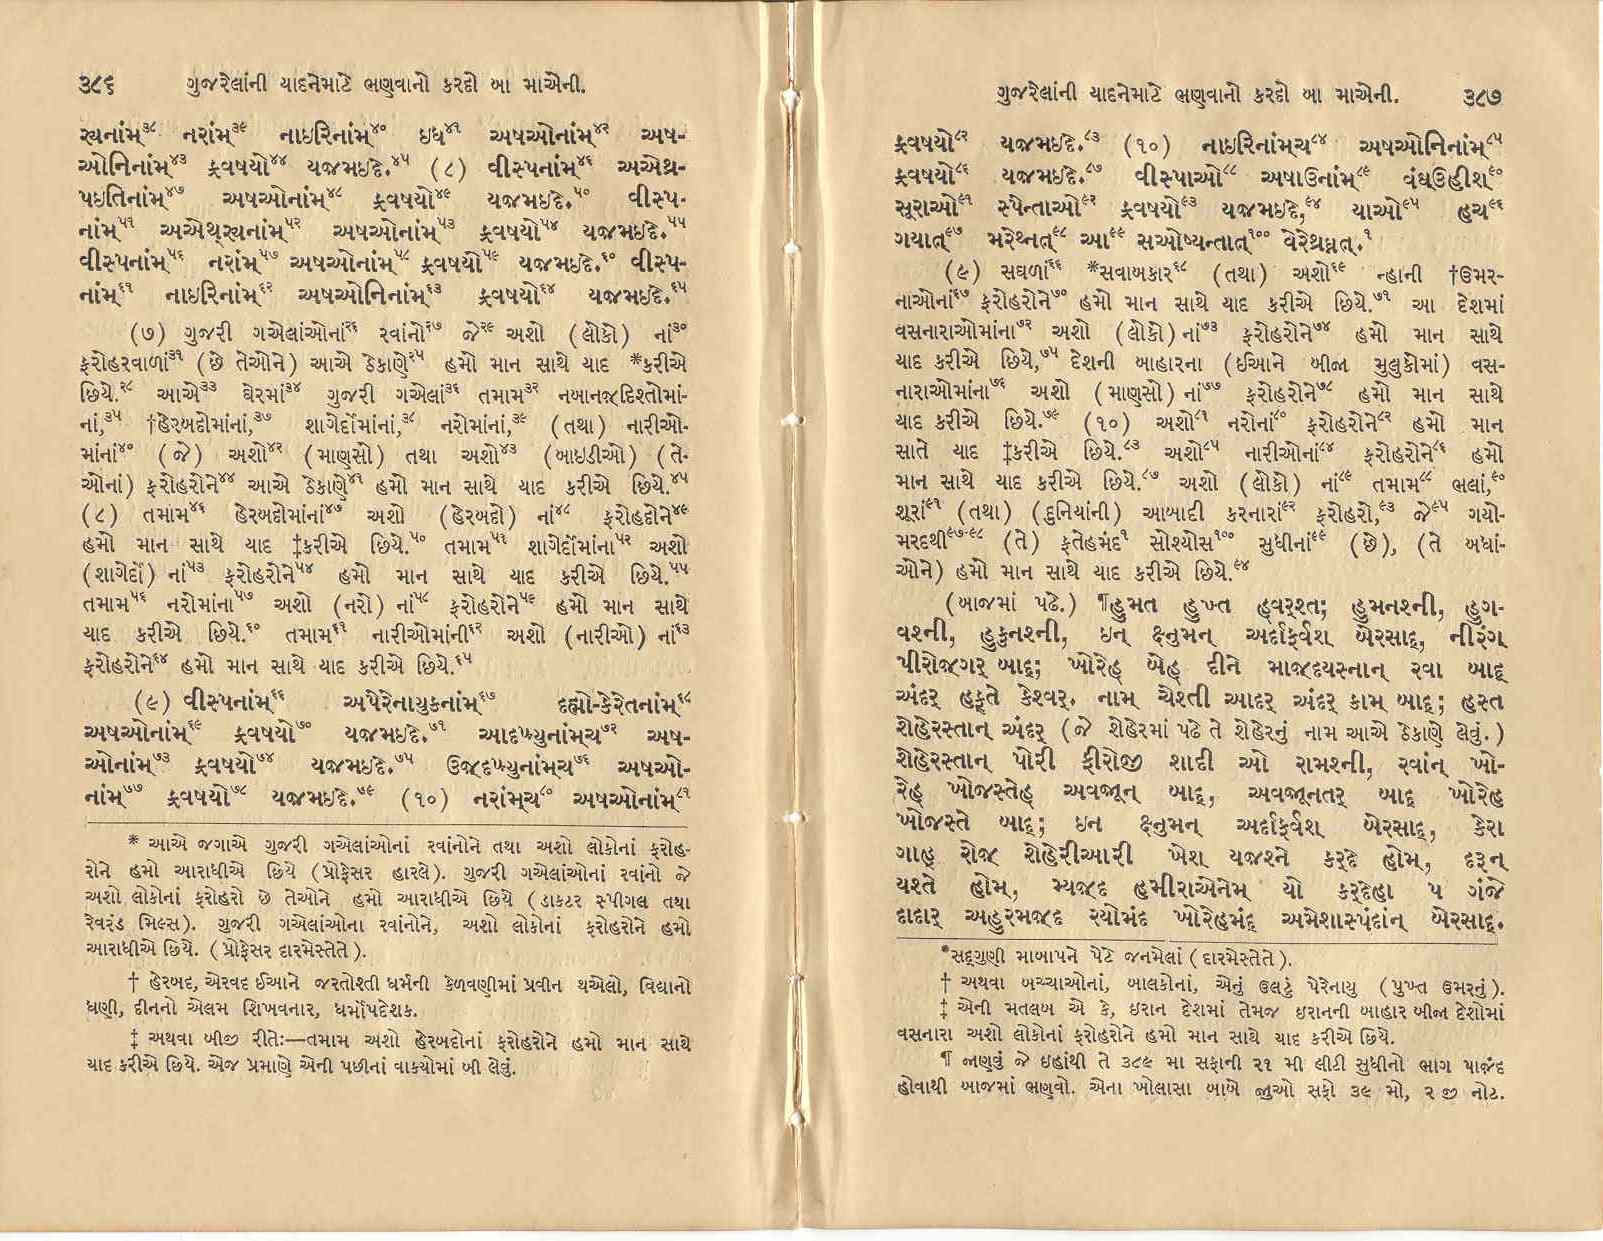 ૩૮૬ ગુજરેલાંની યાદનેમાટે ભણવાનો કરદો બા માએની.
સ્યનાંમ્૩૮ નરાંમ્૩૯ નાઇરિનાંમ્૪૦ ઇધ૪૧ અષઓનાંમ્૪૨ અષ-
ઓનિનાંમ્૪૩ ફ્રવષયો૪૪ યજમઇદે.૪૫ (૮) વીસ્પનાંમ્૪૬ અએથ્ર-
પઇતિનાંમ્૪૭ અષઓનાંમ્૪૮ ફ્રવષયો૪૯ યજમઇદે.૫૦ વીસ્પ-
નાંમ્૫૧ અએથ્ર્યનાંમ્૫૨ અષઓનાંમ્૫૩ ફ્રવષયો૫૪ યજમઇદે.૫૫
વીસ્પનાંમ્૫૬ નરાંમ્૫૭ અષઓનાંમ્૫૮ ફ્રવષયો૫૯ યજમઇદે.૬૦ વીસ્પ-
નાંમ્૬૧ નાઇરિનાંમ્૬૨ અષઓનિનાંમ્૬૩ ફ્રવષયો૬૪ યજમઇદે.૬૫
(૭) ગુજરી ગએલાંઓનાં૨૬ રવાંનો૨૭ જે૨૯ અશો (લોકો) નાં૩૦
ફરોહરવાળાં૩૧ (છે તેઓને) આએ ઠેકાણે૨૫ હમો માન સાથે યાદ *કરીએ
છિયે.૨૮ આએ૩૩ ઘેરમાં૩૪ ગુજરી ગએલાં૩૬ તમામ૩૨ નબાનજદિશ્તોમાં-
નાં,૩૫ †હેરબદોમાંનાં,૩૭ શાગેર્દોમાંનાં,૩૮ નરોમાંનાં,૩૯ (તથા) નારીઓ-
માંનાં૪૦ (જે) અશો૪૨ (માણસો) તથા અશો૪૩ (બાઇડીઓ) (તે-
ઓનાં) ફરોહરોને૪૪ આએ ઠેકાણે૪૧ હમો માન સાથે યાદ કરીએ છિયે.૪૫
(૮) તમામ૪૬ હેરબદોમાંનાં૪૭ અશો (હેરબદો) નાં૪૮ ફરોહદોને૪૯
હમો માન સાથે યાદ ‡કરીએ છિયે.૫૦ તમામ૫૧ શાગેર્દોમાંના૫૨ અશો
(શાગેર્દો) નાં૫૩ ફરોહરોને૫૪ હમો માન સાથે યાદ કરીએ છિયે.૫૫
તમામ૫૬ નરોમાંના૫૭ અશો (નરો) નાં૫૮ ફરોહરોને૫૯ હમો માન સાથે
યાદ કરીએ છિયે.૬૦ તમામ૬૧ નારીઓમાંની૬૨ અશો (નારીઓ) નાં૬૩
ફરોહરોને૬૪ હમો માન સાથે યાદ કરીએ છિયે.૬૫
(૯) વીસ્પનાંમ્૬૬ અપેરેનાયુકનાંમ્૬૭ દહ્મો-કેરેતનાંમ્૬૮
અષઓનાંમ્૬૯ ફ્રવષયો૭૦ યજમઇદે.૭૧ આદખ્યુનાંમ્ચ૭૨ અષ-
ઓનાંમ્૭૩ ફ્રવષયો૭૪ યજમઇદે.૭૫ ઉજદખ્યુનાંમ્ચ૭૬ અષઓ-
નાંમ્૭૭ ફ્રવષયો૭૮ યજમઇદે.૭૯ (૧૦) નરાંમ્ચ૮૦ અષઓનાંમ્૮૧
* આએ જગાએ ગુજરી ગએલાંઓનાં રવાંનોને તથા અશો લોકોનાં ફરોહ-
રોને હમો આરાધીએ છિયે (પ્રોફેસર હારલે). ગુજરી ગએલાંઓનાં રવાંનો જે
અશો લોકોનાં ફરોહરો છે તેઓને હમો આરાધીએ છિયે (ડાકટર સ્પીગલ તથા
રેવરંડ મિલ્સ). ગુજરી ગએલાંઓના રવાંનોને, અશો લોકોનાં ફરોહરોને હમો
આરાધીએ છિયે. (પ્રોફેસર દારમેસ્તેતે).
† હેરબદ, એરવદ ઈઆને જરતોશ્તી ધર્મની કેળવણીમાં પ્રવીન થએલો, વિદ્યાનો
ધણી, દીનનો એલમ શિખવનાર, ધર્મોપદેશક.
‡ અથવા બીજી રીતેઃ—તમામ અશો હેરબદોનાં ફરોહરોને હમો માન સાથે
યાદ કરીએ છિયે. એજ પ્રમાણે એની પછીનાં વાકયોમાં બી લેવું.
ગુજરેલાંની યાદનેમાટે ભણવાનો કરદો બા માએની. ૩૮૭
ફ્રવષયો૮૨ યજમઇદે.૮૩ (૧૦) નાઇરિનાંમ્ચ૮૪ અષઓનિનાંમ્૮૫
ફ્રવષયો૮૬ યજમઇદે.૮૭ વીસ્પાઓ૮૮ અષાઉનાંમ્૮૯ વંઘઉહીશ૯૦
સૂરાઓ૯૧ સ્પેન્તાઓ૯૨ ફ્રવષયો૯૩ યજમઇદે,૯૪ યાઓ૯૫ હચ૯૬
ગયાત્૯૭ મરેથ્નત્૯૮ આ૯૯ સઓષ્યન્તાત્૧૦૦ વેરેથ્રઘ્નત્.૧
(૯) સઘળાં૬૬ *સવાબકાર૬૮ (તથા) અશો૬૯ ન્હાની †ઉમર-
નાઓનાં૬૭ ફરોહરોને૭૦ હમો માન સાથે યાદ કરીએ છિયે.૭૧ આ દેશમાં
વસનારાઓમાંના૭૨ અશો (લોકો) નાં૭૩ ફરોહરોને૭૪ હમો માન સાથે
યાદ કરીએ છિયે,૭૫ દેશની બાહારના (ઈઆને બીજા મુલુકોમાં) વસ-
નારાઓમાંના૭૬ અશો (માણસો) નાં૭૭ ફરોહરોને૭૮ હમો માન સાથે
યાદ કરીએ છિયે.૭૯ (૧૦) અશો૮૧ નરોનાં૮૦ ફરોહરોને૮૨ હમો માન
સાતે યાદ ‡કરીએ છિયે.૮૩ અશો૮૫ નારીઓનાં૮૪ ફરોહરોને૮૬ હમો
માન સાથે યાદ કરીએ છિયે.૮૭ અશો (લોકો) નાં૮૯ તમામ૮૮ ભલાં,૯૦
શૂરાં૯૧ (તથા) (દુનિયાંની) આબાદી કરનારાં૯૨ ફરોહરો,૯૩ જે૯૫ ગયો-
મરદથી૯૭-૯૮ (તે) ફતેહમંદ૧ સોશ્યોસ૧૦૦ સુધીનાં૯૯ (છે), (તે બધાં-
ઓને) હમો માન સાથે યાદ કરીએ છિયે.૯૪
(બાજમાં પઢે.) ¶હુમત હુખ્ત હ્વર્શ્ત; હુમનશ્ની, હુગ-
વશ્ની, હુકુનશ્ની, ઇન્ ક્ષ્નુમન્ અર્દાફર્વશ બેરસાદ્, નીરંગ
પીરોજગર્ બાદ્; ખોરેહ બેહ દીને માજદયસ્નાન્ રવા બાદ્
અંદર્ હફ્તે કેશ્વર્. નામ ચેશ્તી આદર્ અંદર્ કામ બાદ્; હસ્ત
શેહેરસ્તાન્ અંદર્ (જે શેહેરમાં પઢે તે શેહેરનું નામ આએ ઠેકાણે લેવું.)
શેહેરસ્તાન્ પોરી ફીરોજી શાદી ઓ રામશ્ની, રવાંન્ ખો-
રેહ્ ખોજસ્તેહ્ અવજૂન્ બાદ્, અવજૂનતર્ બાદ્ ખોરેહ
ખોજસ્તે બાદ્; ઇન ક્ષ્નુમન્ અર્દાફર્વશ બેરસાદ્, કેરા
ગાહ્ રોજ શેહેરીઆરી ખેશ યજશ્ને કર્દે હોમ્, દરૂન્
યશ્તે હોમ્, મ્યજ્દ હમીરાએનેમ્ યો કર્દેહા પ ગંજે
દાદાર્ અહુરમજ્દ રયોમંદ ખોરેહમંદ્ અમેશાસ્પંદાંન્ બેરસાદ્.
*સદ્ગુણી માબાપને પેટે જનમેલાં (દારમેસ્તેતે).
† અથવા બચ્ચાઓનાં, બાલકોનાં, એનું ઉલટું પેરેનાયુ (પુખ્ત ઉમરનું).
‡ એની મતલબ એ કે, ઇરાન દેશમાં તેમજ ઇરાનની બાહાર બીજા દેશોમાં
વસનારા અશો લોકોનાં ફરોહરોને હમો માન સાથે યાદ કરીએ છિયે.
¶ જાણવું જે ઇહાંથી તે ૩૮૯ મા સફાની ૨૧ મી લીટી સુધીનો ભાગ પાજંદ
હોવાથી બાજમાં ભણવો. એના ખોલાસા બાબે જુઓ સફો ૩૯ મો, ૨ જી નોટ.